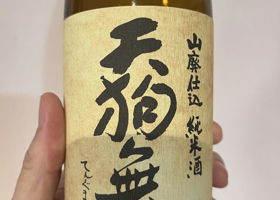 山廃仕込 純米酒
天狗無
てんぐま